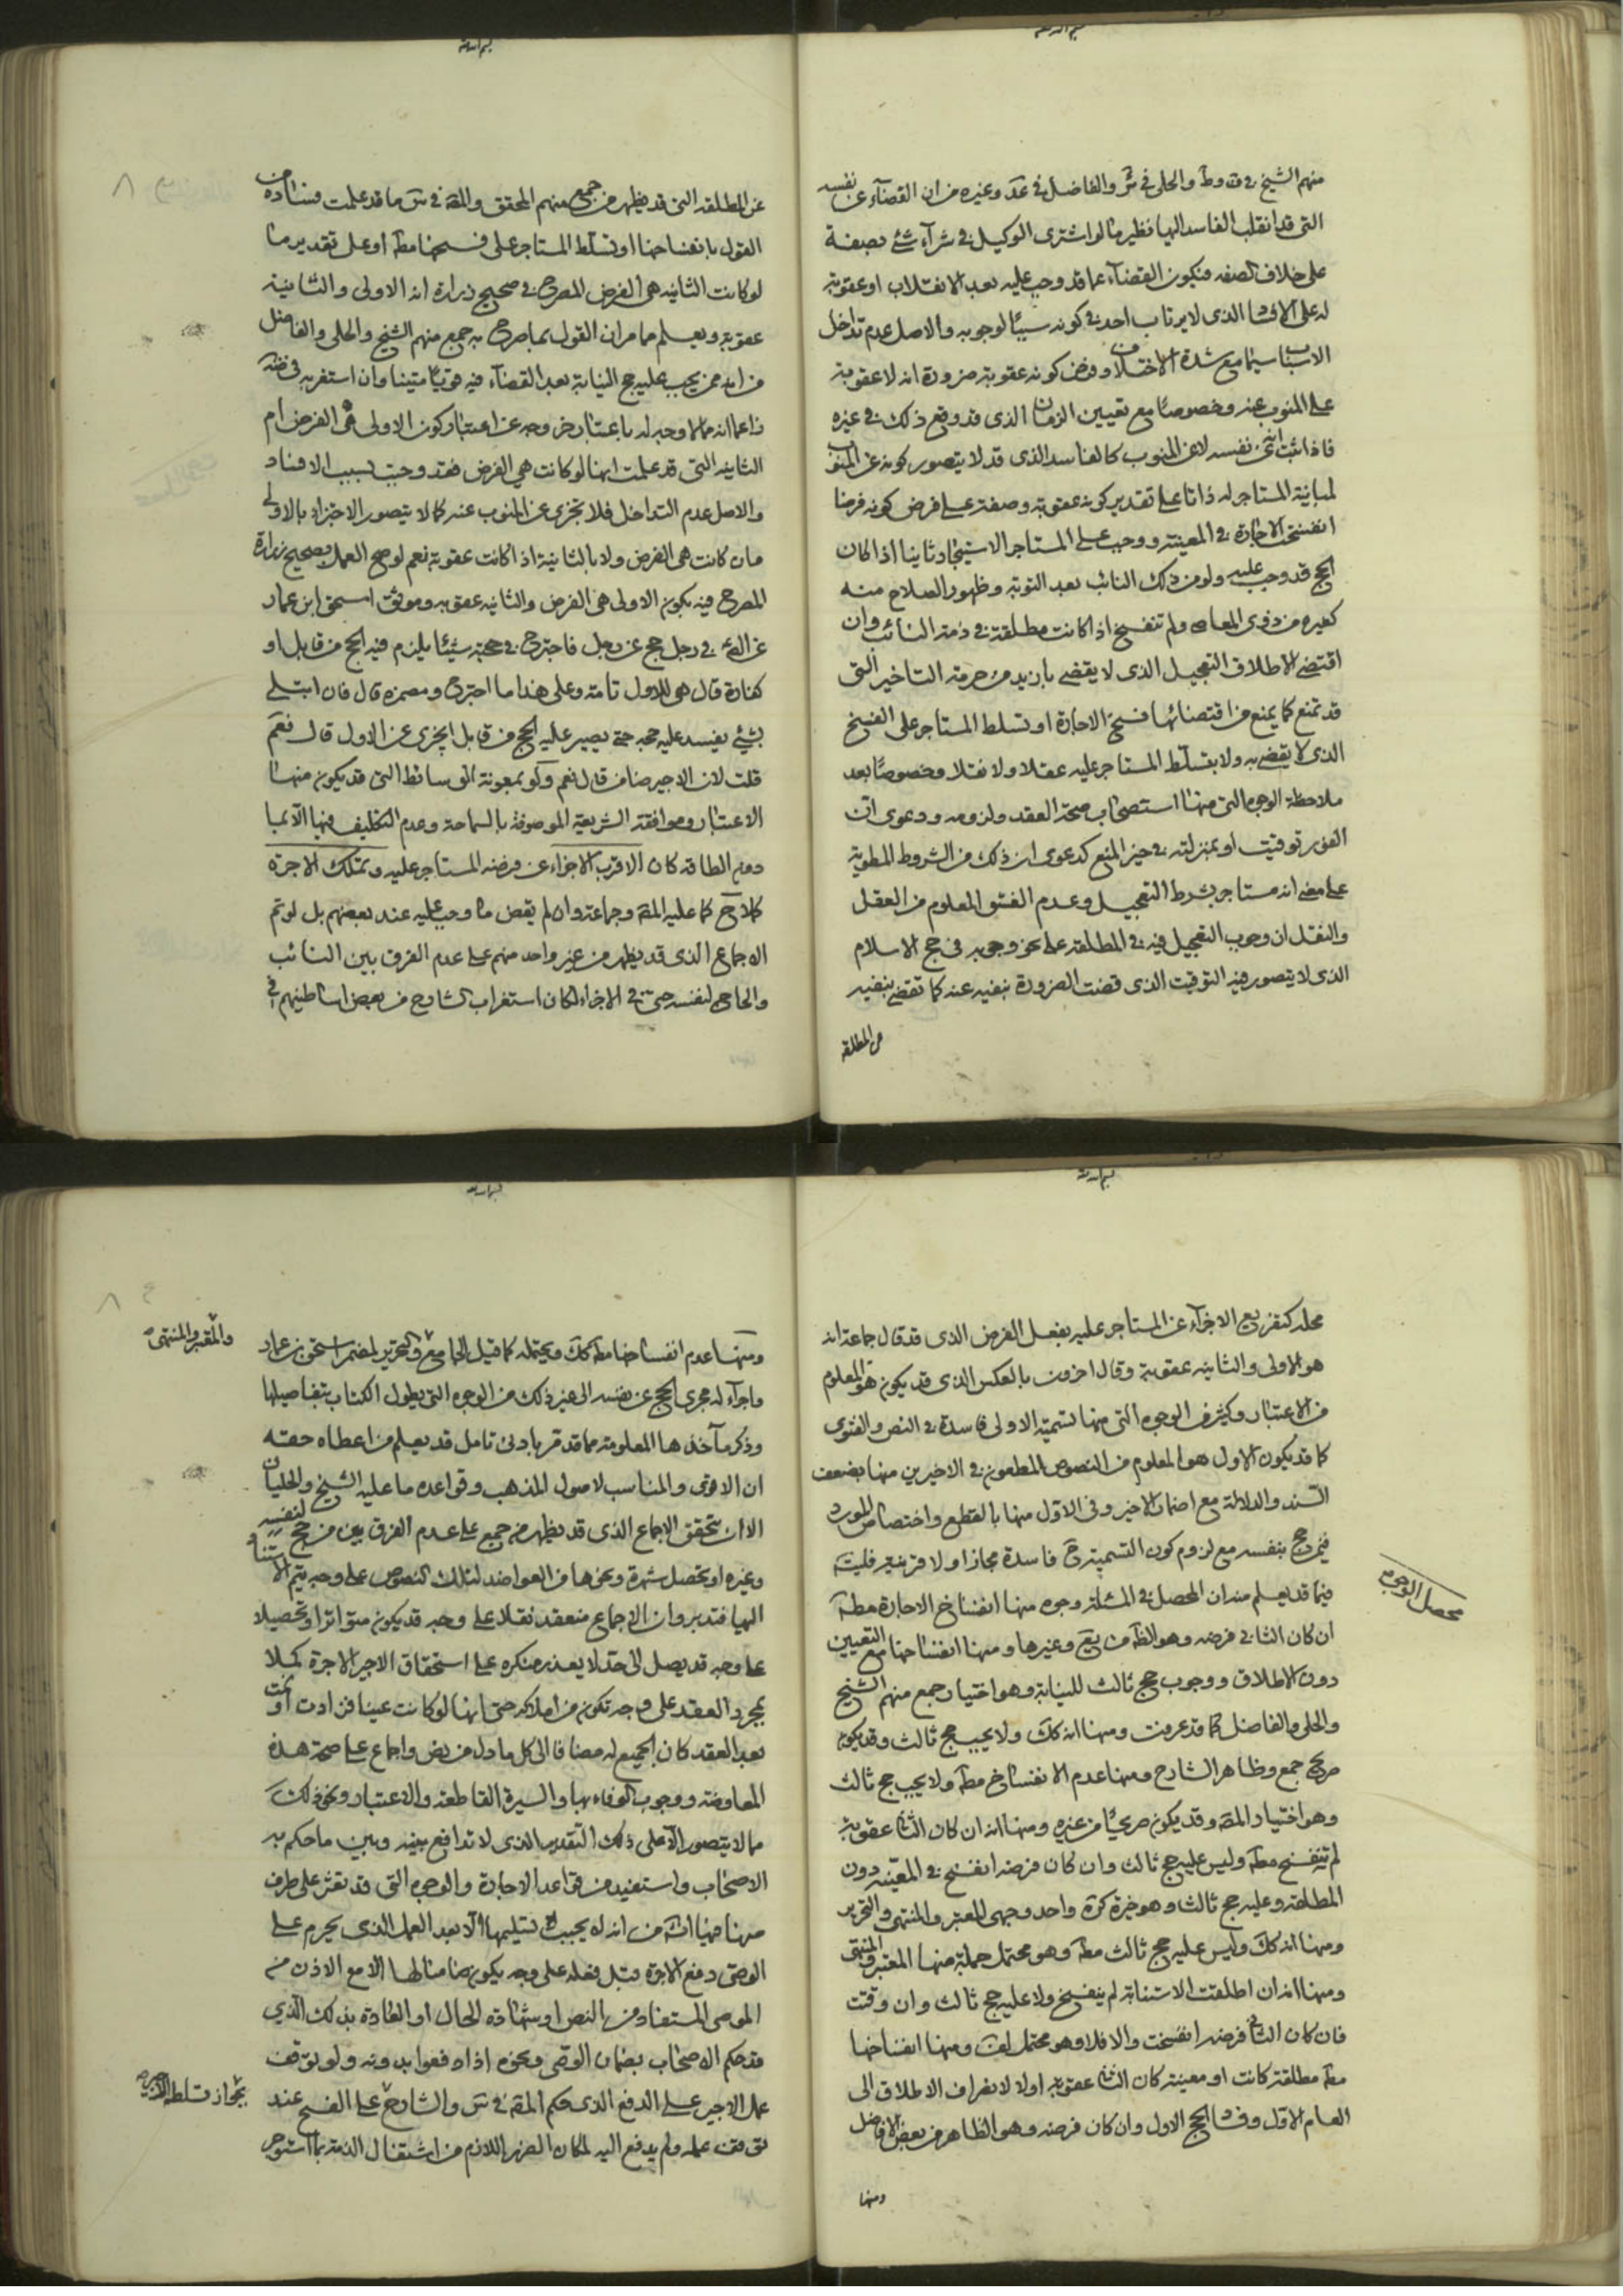 منهم الشيخ في ف وط والحلي في ئر والفاضل في عد وغيره من ان القضاء عن نفسه
التي قد انقلب الفاسد اليها نظير ما لو اشترى الوكيل في شرآء شئ بصفة
على خلاف الصفه فيكون القضآء عما قد وجب عليه بعد الانقلاب او عقوبة
له على الافساد الذي لا يرتاب احد في كونه سببًا لوجوبه والاصل عدم تداخل
الاسباب سيما مع شدة الاختلاف وفرض كونه عقوبة ضرورة انه لا عقوبة
على المنوب عنه وخصوصًا مع تعيين الزمان الذي قد وقع ذلك في غيره
فاذا ثبت انه عن نفسه لا عن المنوب كالفاسد الذي قد لا يتصور كونه عن المنوب
لمباينة المستاجر له ذاتا على تقدير كونه عقوبة وصفة على فرض كونه فرضا
انفسخت الاجارة في المعينة ووجب على المستاجر الاستيجار ثانيا اذا كان
الحج قد وجب عليه ولو من ذلك النائب بعد التوبة وظهور الصلاح منه
كغيره من ذوي المعاصي ولم تنفسخ اذا كانت مطلقة في ذمة النائب وان
اقتضى الاطلاق التعجيل الذي لا يقضي بازيد من حرمة التاخير التي
قد تمنع كما يمنع من اقتضائها فسخ الاجارة او تسلط المستاجر على الفسخ
الذي لا يقضي به ولا بتسلط المستاجر عليه عقلا ولا نقلا وخصوصًا بعد
ملاحظة الوجوه التي منها استصحاب صحة العقد ولزومه ودعوى ان
الفور توقيت او بمنزلته في حيز المنع كدعوى ان ذلك من الشروط المطوية
على معنى انه مستاجر بشرط التعجيل وعدم الفسق المعلوم من العقل
والنقل ان وجوب التعجيل فيه في المطلقة على نحو وجوبه في حج الاسلام
الذي لا يتصور فيه التوقيت الذي قضت الضرورة بنفيه عنه كما تقضي بنفيه
عن المطلقة
عن المطلقه التي قد يظهر من جمع منهم المحقق والمقه في س ما قد علمت فساده من
القول بانفساخها او تسلط المستاجر على فسخها مطه او على تقدير ما
لو كانت الثانيه هي الفرض المصرح في صحيح زرارة انه الاولى والثانية
عقوبة ويعلم مما مر ان القول بما صرح به جمع منهم الشيخ والحلي والفاضل
من انه ممن يجب عليه حج النيابة بعد القضآء فيه قويًا متينا وان استغربه في ضه
زاعما انه مما لا وجه له باعتبار خروجه عن اعتبار كون الاولى هي الفرض ام
الثانيه التي قد علمت انها لو كانت هي الفرض فقد وجبت بسبب الافساد
والاصل عدم التداخل فلا تجزى عن المنوب عنه كما لا يتصور الاجتزاء بالاولى
وان كانت هي الفرض ولا بالثانية اذا كانت عقوبة نعم لو صح العمل بصحيح زرارة
المصرح فيه بكون الاولى هي الفرض والثانيه عقوبه وموثق اسحق ابن عمار
عن الصه في رجل حج عن رجل فاجترح في حجته شيئًا يلزم فيه الحج من قابل او
كفارة قال هي للاول تامة وعلى هذا ما اجترح ومضمره قال فان ابتلى
بشئ يفسد عليه حجه حتى يصير عليه الحج من قابل ايجزى عن الاول قال نعم
قلت لان الاجير ضامن قال نعم ولو بمعونة الوسائط التي قد يكون منها
الاعتبار وموافقة الشريعة الموصوفة بالسماحة وعدم التكليف فيها الا بما
دون الطاقه كان الاقرب الاجزاء عن فرضه المستاجر عليه وتملك الاجرة
كملا ح كما عليه المقه وجماعة وان لم يقض ما وجب عليه عند بعضهم بل لو تم
الاجماع الذي قد يظهر من غير واحد منهم على عدم الفرق بين النائب
والحاج لنفسه حتى في الاجزاء لكان استغراب الشارح من بعض اساطينهم في
محله كتفريع الاجزآء عن المستاجر عليه بفعل الفرض الذي قد قال جماعة انه
هو الاولى والثانيه عقوبة وقال اخرون بالعكس الذي قد يكون هو المعلوم
من الاعتبار وكثير من الوجوه التي منها تسمية الاولى فاسدة في النص والفتوى
كما قد يكون الاول هو المعلوم من النصوص المطعون في الاخيرين منها بضعف
السند والدلالة مع اضمار الاخير وفي الاول منها بالقطع واختصاص المورد
فيمن حج بنفسه مع لزوم كون التسمية ح فاسدة مجازا ولا قرينة فليت
فيما قد يعلم منه ان المحصل في المسئلة وجوه منها انفساخ الاجارة مطه
ان كان الثاني فرضه وهو الظه من يع وغيرها ومنها انفساخها مع التعيين
دون الاطلاق ووجوب حج ثالث للنيابة وهو اختيار جمع منهم الشيخ
والحلي والفاضل كما قد عرفت ومنها انه كك ولا يجب حج ثالث وقد يكون
صريح جمع وظاهر الشارح ومنها عدم الانفساخ مطه ولا يجب حج ثالث
وهو اختيار المقه وقد يكون صريحًا من غيره ومنها انه ان كان الثاني عقوبة
لم تنفسخ مطه وليس عليه حج ثالث وان كان فرضه انفسخ في المعينه دون
المطلقه وعليه حج ثالث وهو خيرة كرة واحد وجهي المعتبر والمنتهى والتحرير
ومنها انه كك وليس عليه حج ثالث مطه وهو محتمل جملة منها المعتبر والمنتهى
ومنها انه ان اطلقت الاستنابة لم ينفسخ ولا عليه حج ثالث وان وقتت
فان كان الثاني فرضه انفسخت والا فلا وهو محتمل لف ومنها انفساخها
مطه مطلقة كانت او معينة كان الثاني عقوبة اولا لانصراف الاطلاق الى
العام الاول وفساد الحج الاول وان كان فرضه وهو الظاهر من بعض الافاضل
محصل الوجوه
ومنها
ومنها عدم انفساخها مطه كك ويحتمله كما قيل الجامع والتحرير لمضمر اسحق بن عمار
والمعتبر والمنتهى
واجرآء له مجرى الحج عن نفسه الى غير ذلك من الوجوه التي يطول الكتاب بتفاصيلها
وذكر مآخذها المعلومة مما قد قر بادنى تامل قد يعلم من اعطاه حقه
ان الاقوى والمناسب لاصول المذهب وقواعده ما عليه الشيخ والحليان
الا ان يتحقق الاجماع الذي قد يظهر من جمع على عدم الفرق بين من حج لنفسه
وغيره او تحصل شهرة ونحوها من العواضد لتلك النصوص على وجه يتم الاستناد
اليها فتدبر وان الاجماع منعقد نقلا على وجه قد يكون متواترا وتحصيلا
على وجه قد يصل الى حد لا يعذر منكره على استحقاق الاجير الاجرة كملا
بمجرد العقد على وجه تكون من املاكه حتى انها لو كانت عينا فزادت او نمت
بعد العقد كان الجميع له مضافا الى كل ما دل من نص واجماع على صحة هذه
المعاوضه ووجوب الوفاء بها والسيرة القاطعة والاعتبار ونحو ذلك
مما لا يتصور الا على ذلك التقدير الذي لا تدافع بينه وبين ما حكم به
الاصحاب واستفيد من قواعد الاجارة والوجوه التي قد تعثر على طرف
منها فيما انشه من انه له يجب تسليمها الا بعد العمل الذي يحرم على
الوصي دفع الاجرة قبل فعله على وجه يكون ضامنا لها الا مع الاذن من
الموصي المستفاد من النص او شهادة الحال او العادة بذلك الذي
قد حكم الاصحاب بضمان الوصي ونحوه اذا دفعوا بدونه ولو توقف
عمل الاجير على الدفع الذي حكم المقه في س والشارح على الفسخ عند
بجواز تسلط الاجير
توقف عمله ولم يدفع اليه لمكان الضرر اللازم من اشتغال الذمة بما استوجر